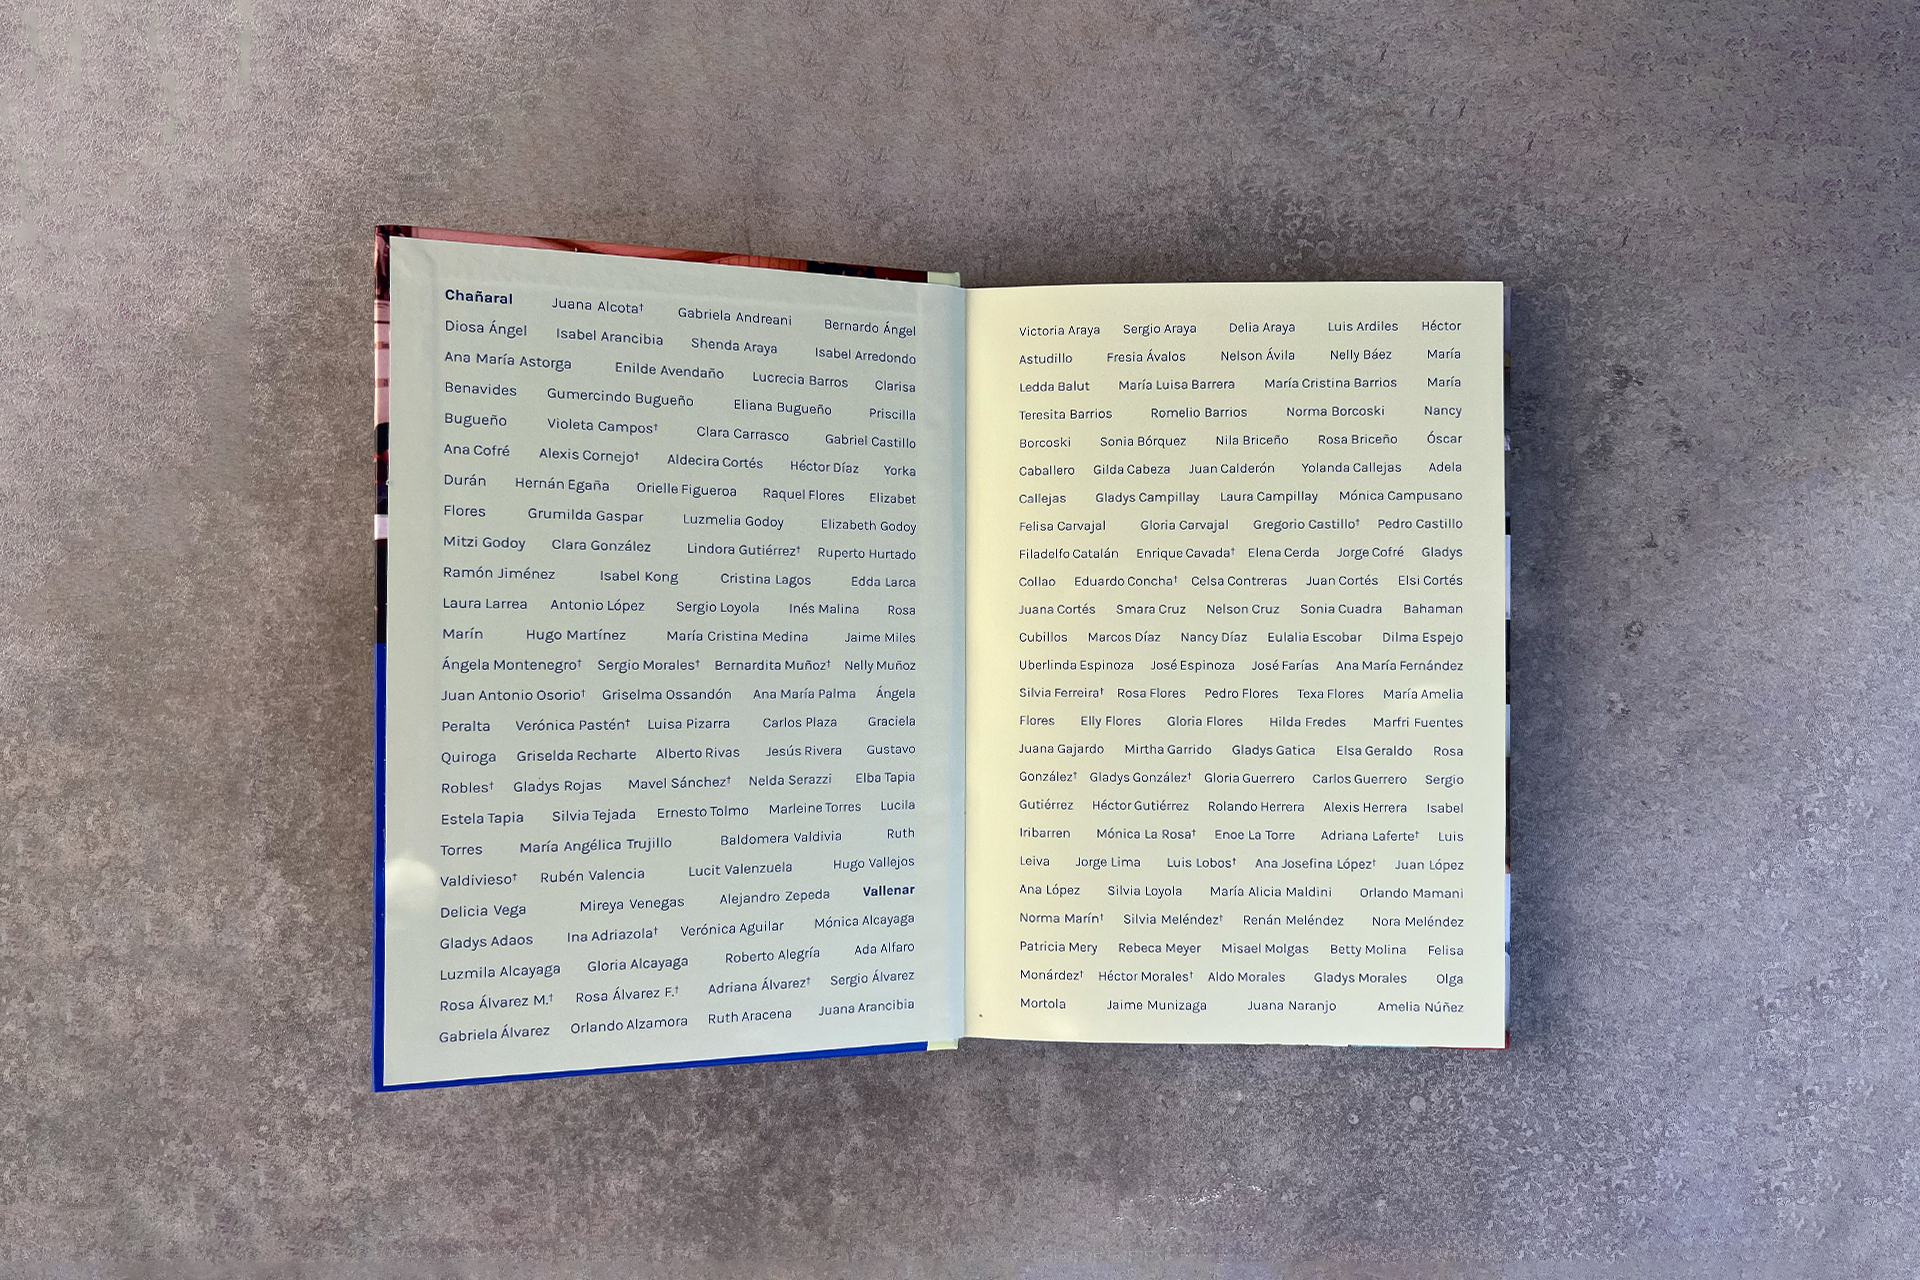 Chañaral Juana Alcota† Gabriela Andreani Bernardo Ángel
Diosa Ángel Isabel Arancibia Shenda Araya Isabel Arredondo
Ana María Astorga Enilde Avendaño Lucrecia Barros Clarisa
Benavides Gumercindo Bugueño Eliana Bugueño Priscilla
Bugueño Violeta Campos† Clara Carrasco Gabriel Castillo
Ana Cofré Alexis Cornejo† Aldecira Cortés Héctor Díaz Yorka
Durán Hernán Egaña Orielle Figueroa Raquel Flores Elizabet
Flores Grumilda Gaspar Luzmelia Godoy Elizabeth Godoy
Mitzi Godoy Clara González Lindora Gutiérrez† Ruperto Hurtado
Ramón Jiménez Isabel Kong Cristina Lagos Edda Larca
Laura Larrea Antonio López Sergio Loyola Inés Malina Rosa
Marín Hugo Martínez María Cristina Medina Jaime Miles
Ángela Montenegro† Sergio Morales† Bernardita Muñoz† Nelly Muñoz
Juan Antonio Osorio† Griselma Ossandón Ana María Palma Ángela
Peralta Verónica Pastén† Luisa Pizarra Carlos Plaza Graciela
Quiroga Griselda Recharte Alberto Rivas Jesús Rivera Gustavo
Robles† Gladys Rojas Mavel Sánchez† Nelda Serazzi Elba Tapia
Estela Tapia Silvia Tejada Ernesto Tolmo Marleine Torres Lucila
Torres María Angélica Trujillo Baldomera Valdivia Ruth
Valdivieso† Rubén Valencia Lucit Valenzuela Hugo Vallejos
Delicia Vega Mireya Venegas Alejandro Zepeda Vallenar
Gladys Adaos Ina Adriazola† Verónica Aguilar Mónica Alcayaga
Luzmila Alcayaga Gloria Alcayaga Roberto Alegría Ada Alfaro
Rosa Álvarez M.† Rosa Álvarez F.† Adriana Álvarez† Sergio Álvarez
Gabriela Álvarez Orlando Alzamora Ruth Aracena Juana Arancibia
Victoria Araya Sergio Araya Delia Araya Luis Ardiles Héctor
Astudillo Fresia Ávalos Nelson Ávila Nelly Báez María
Ledda Balut María Luisa Barrera María Cristina Barrios María
Teresita Barrios Romelio Barrios Norma Borcoski Nancy
Borcoski Sonia Bórquez Nila Briceño Rosa Briceño Óscar
Caballero Gilda Cabeza Juan Calderón Yolanda Callejas Adela
Callejas Gladys Campillay Laura Campillay Mónica Campusano
Felisa Carvajal Gloria Carvajal Gregorio Castillo† Pedro Castillo
Filadelfo Catalán Enrique Cavada† Elena Cerda Jorge Cofré Gladys
Collao Eduardo Concha† Celsa Contreras Juan Cortés Elsi Cortés
Juana Cortés Smara Cruz Nelson Cruz Sonia Cuadra Bahaman
Cubillos Marcos Díaz Nancy Díaz Eulalia Escobar Dilma Espejo
Uberlinda Espinoza José Espinoza José Farías Ana María Fernández
Silvia Ferreira† Rosa Flores Pedro Flores Texa Flores María Amelia
Flores Elly Flores Gloria Flores Hilda Fredes Marfri Fuentes
Juana Gajardo Mirtha Garrido Gladys Gatica Elsa Geraldo Rosa
González† Gladys González† Gloria Guerrero Carlos Guerrero Sergio
Gutiérrez Héctor Gutiérrez Rolando Herrera Alexis Herrera Isabel
Iribarren Mónica La Rosa† Enoe La Torre Adriana Laferte† Luis
Leiva Jorge Lima Luis Lobos† Ana Josefina López† Juan López
Ana López Silvia Loyola María Alicia Maldini Orlando Mamani
Norma Marín† Silvia Meléndez† Renán Meléndez Nora Meléndez
Patricia Mery Rebeca Meyer Misael Molgas Betty Molina Felisa
Monárdez† Héctor Morales† Aldo Morales Gladys Morales Olga
Mortola Jaime Munizaga Juana Naranjo Amelia Núñez